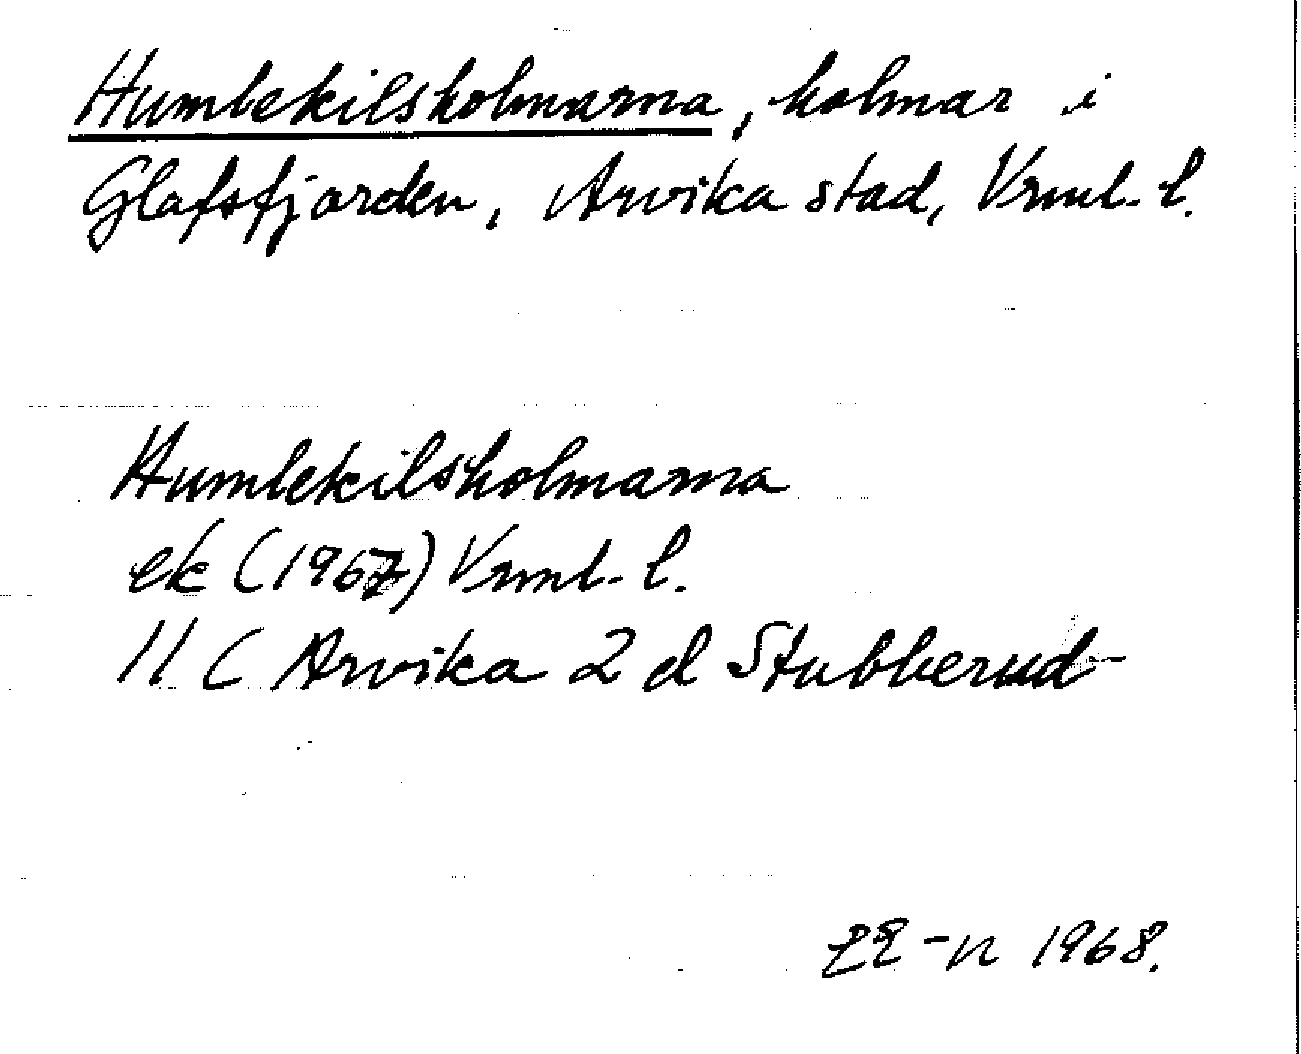 Humlekilsholmarna, holmar i
Glafsfjorden, Arvika stad, Vrml. l.
Humlekilsholmarna
ek (1967) Vrml. l.
11 C Arvika 2 d Stubberud
1968.